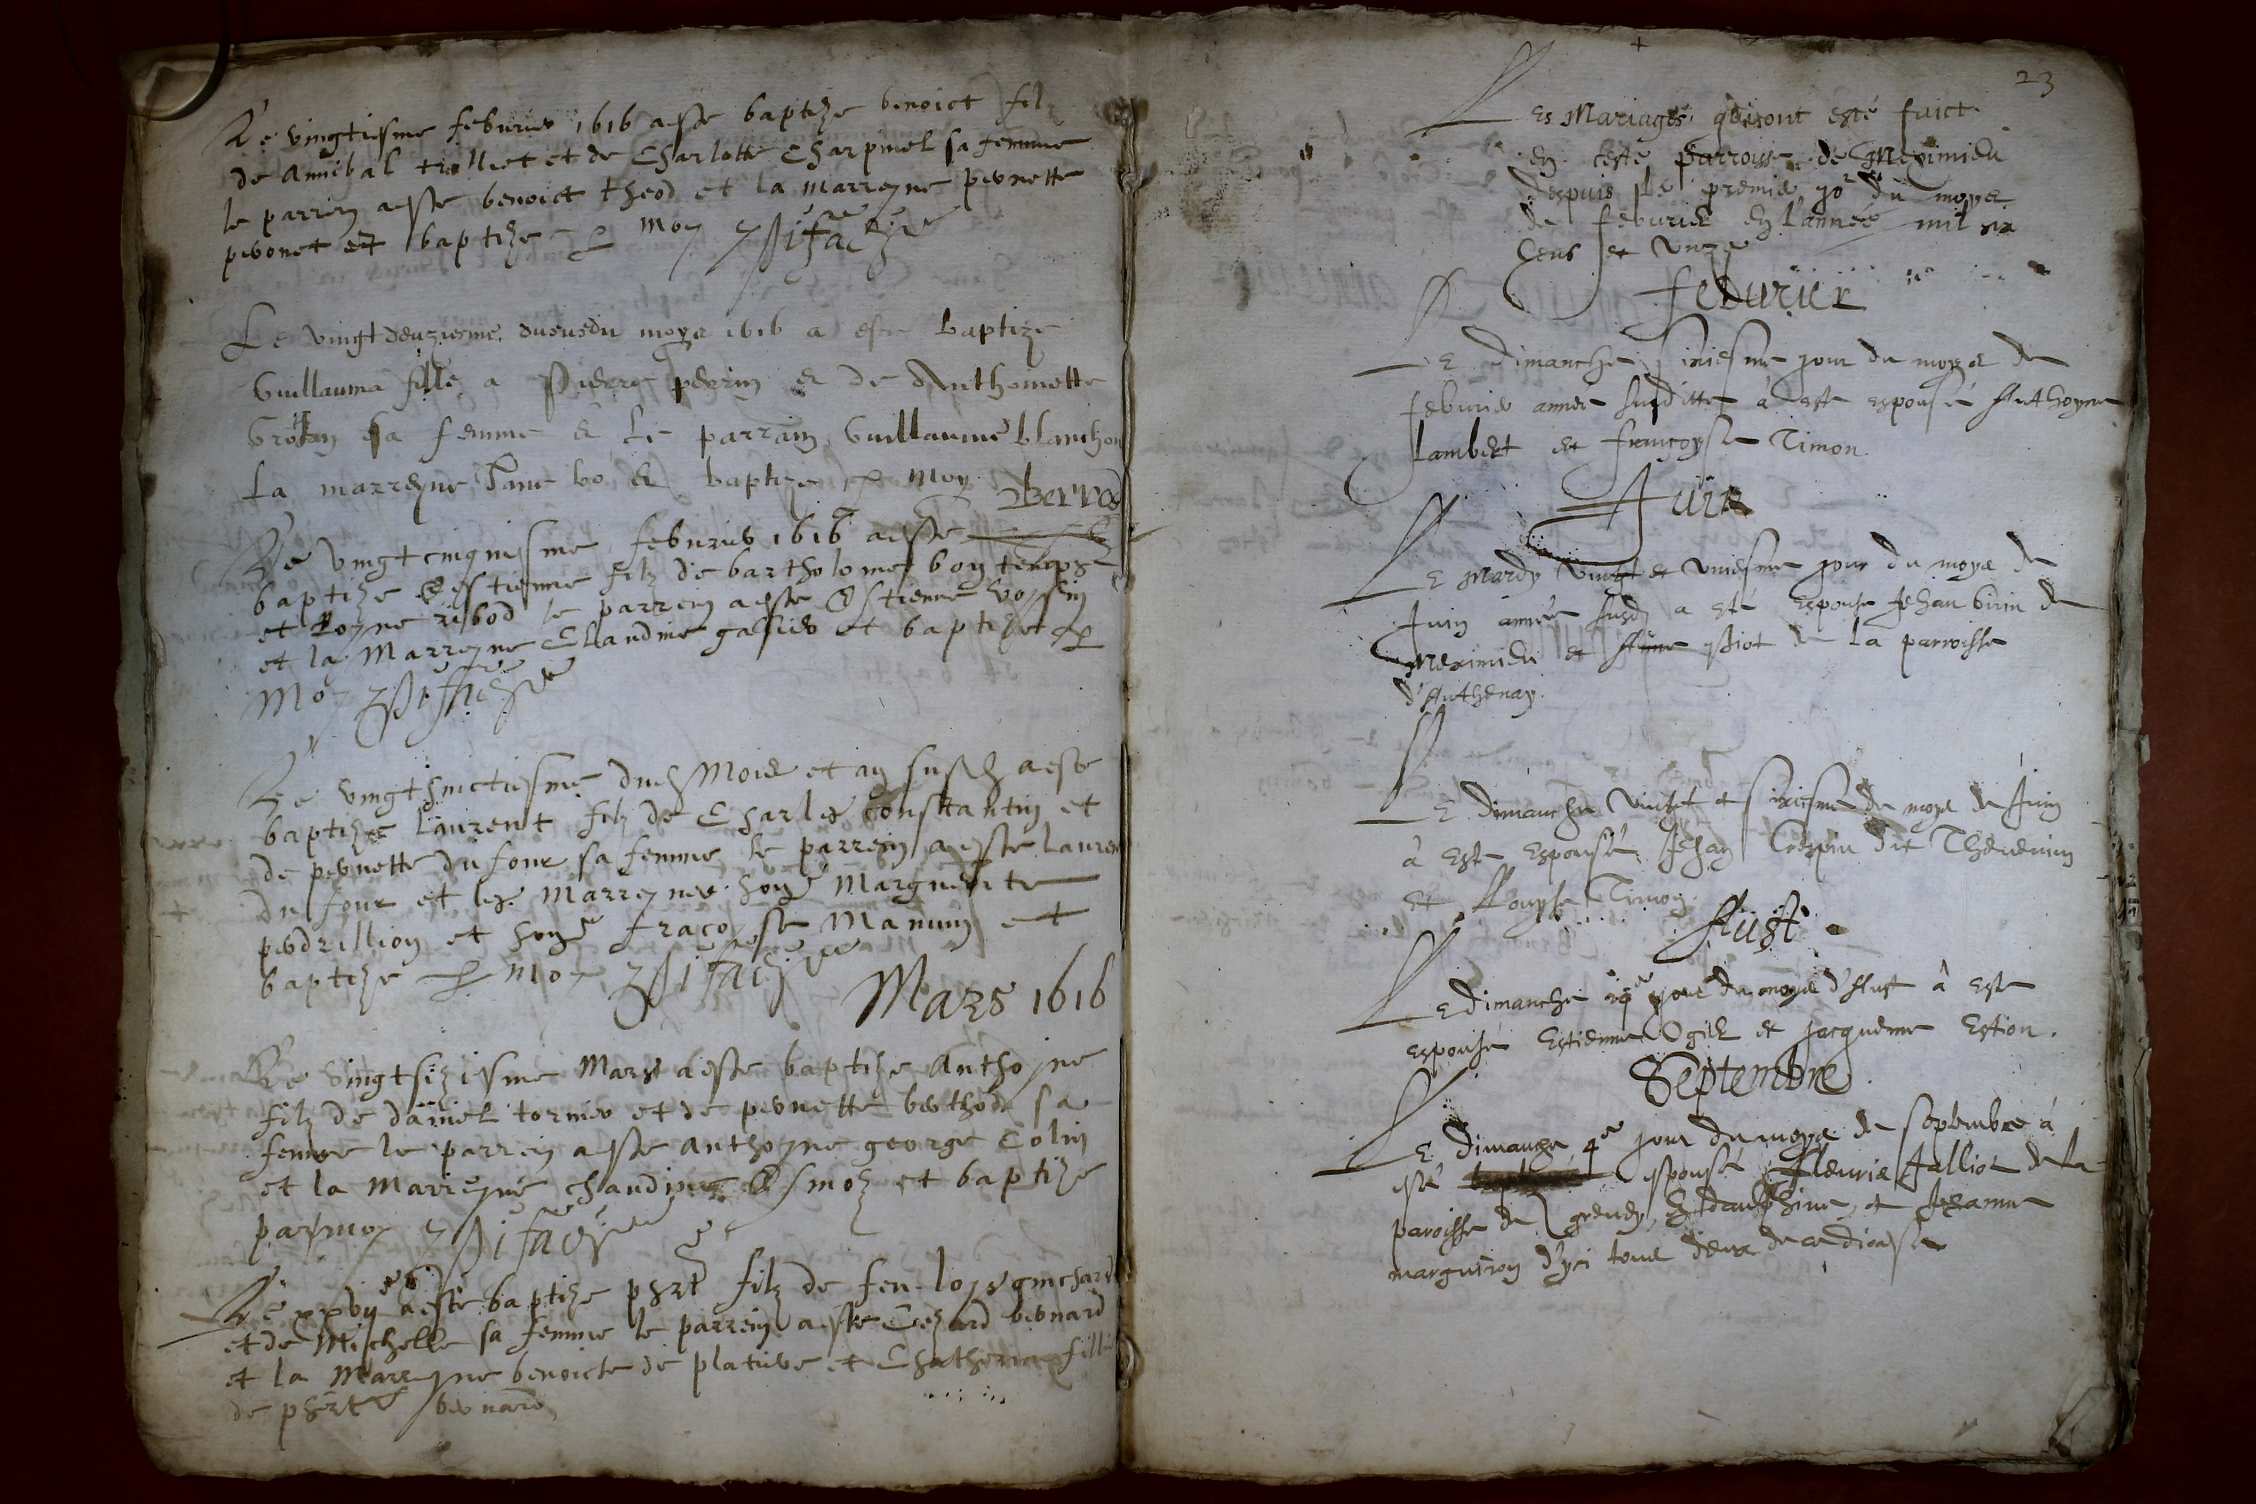 Le vingtiesme febvrier 1616 a este baptize benoict filz
de Annibal trolliet et de Charlotte Charpinel sa femme
le parrin a este benoict theod et la marreyne pernette
peronet et baptize p moy
Le vingtdeuziesme du moys 1616 a este baptize
Guillauma fille a Pierre perrin et de Anthomette
sa femme et le parrain Guillaume blanchon
La marreyne Jane bo et baptize p moy
Le vingtcinquiesme febvrier 1616 a este
baptize Estienne filz de bartholome bon temps
et Royne ribod le parrein a este Estienne voysin
et la Marreyne Claudine et baptize p
Moy
Le vingthuictiesme dud Mois et an susd a este
baptize Laurent filz de Charles Constantin et
de pernette du four sa femme le parrein a este Lauren
du four et les Marreynes Marguerite
pedrillion et fraçoyse Manum et
baptize p moy
Mars 1616
Le vingtsiziesme Mars a este baptize Anthoyne
filz de daniel tornier et de pernette berthod sa
femme le parrein a este anthoyne george Colin
et la Marreyne et baptize
par moy
Le xxvii a este baptize filz de feu loys
et de Michelle sa femme le parrein a este Cezard bernard
et la Marreyne benoicte de plature et Chatherine fille
de bernard
23
Les Mariages qui sont esté faict
en ceste parroisse de Meximieu
despuis le premier jor du moys
de febvrier en l'année mil six
Cens et unze
Febvrier
Le dimanche sixiesme jour du moys de
febvrier année susditte à esté espousé Anthoyne
Lambert et françoyse Timon
Juin
Le Mardy vingt et uniesme jour du moys de
Juin année susd a esté espouse Jehan de
Meximieu et Anne de la parroisse
d'Anthenay.
Le dimanche vingt et sixiesme du moys de Juin
à esté espousé Jehan Crespin dit Thevenin
et Timon.
Aust
Le dimanche jour du moys d'Aust à esté
espousé Estienne Ogier et Jacqueme Estion.
Septembre
Le dimanche 4e jour du moys de septembre à
esté espousé Fleurie Jalliot de la
paroisse de en dauphine, et Jeanne
marguiron d'yci tous deux de ce diocese